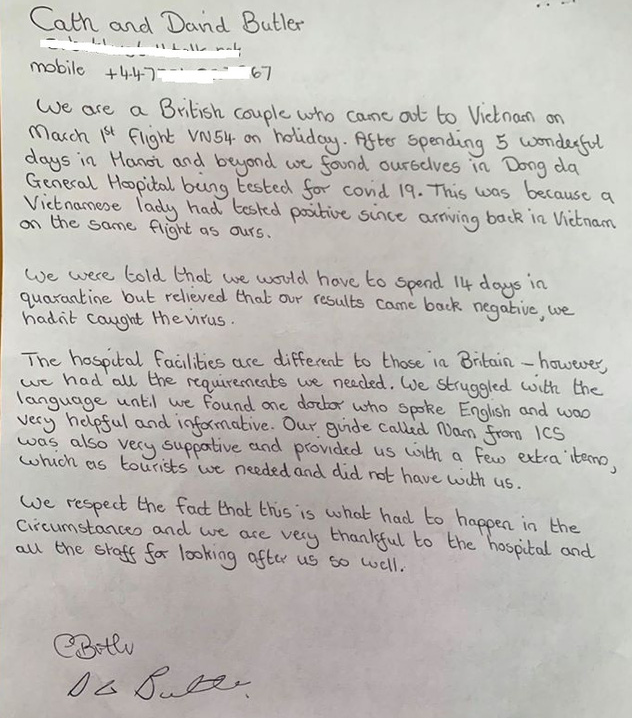 Cath and David Butler
mobile +447 67
We are a British couple who came out to Vietnam on
March 1st flight VN54 on holiday. After spending 5 wonderful
days in Hanoi and beyond we found ourselves in Dong da
General Hospital being tested for covid 19. This was because a
Vietnamese lady had tested positive since arriving back in Vietnam
on the same flight as ours.
We were told that we would have to spend 14 days in
quarantine but relieved that our results came back negative, we
hadn't caught the virus.
The hospital facilities are different to those in Britain - however,
we had all the requirements we needed. We struggled with the
language until we found one doctor who spoke English and was
very helpful and informative. Our guide called Nam from ICS
was also very supportive and provided us with a few extra items,
which as tourists we needed and did not have with us.
We respect the fact that this is what had to happen in the
circumstances and we are very thankful to the hospital and
all the staff for looking after us so well.
CButler
D G Butler